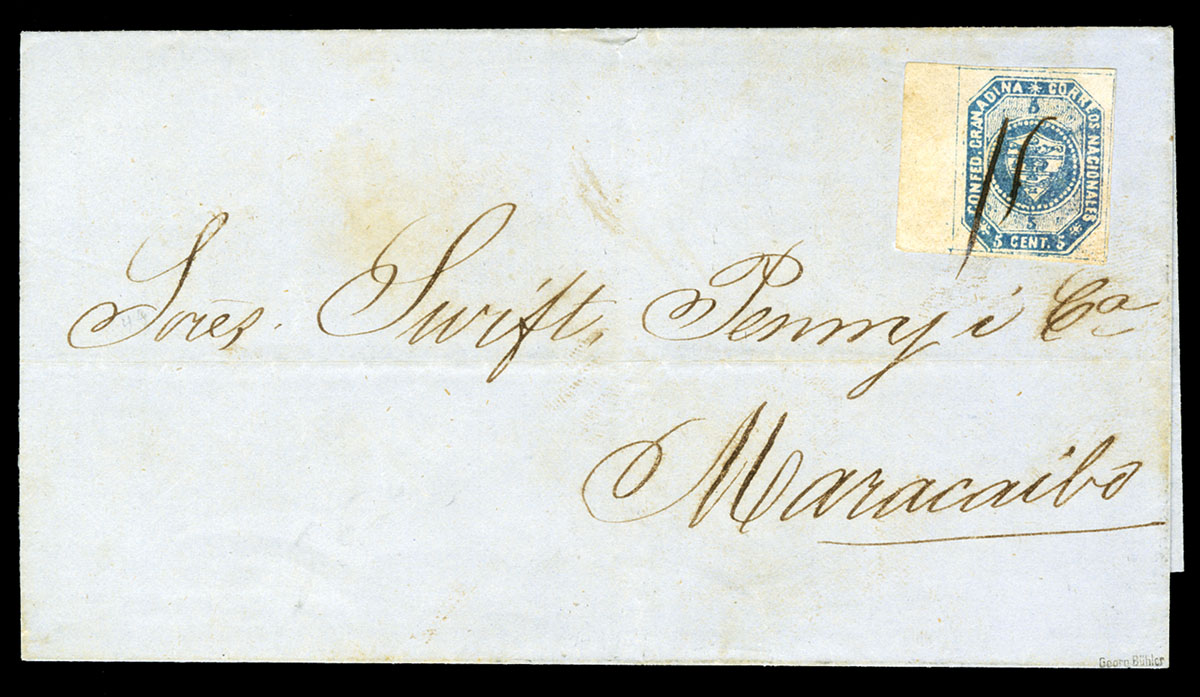 CONFED. GRANADINA * CORREOS NACIONALES *
5
5
5 CENT. 5
Sores. Swift, Penny i Ca
Maracaibo
Georg Bühler